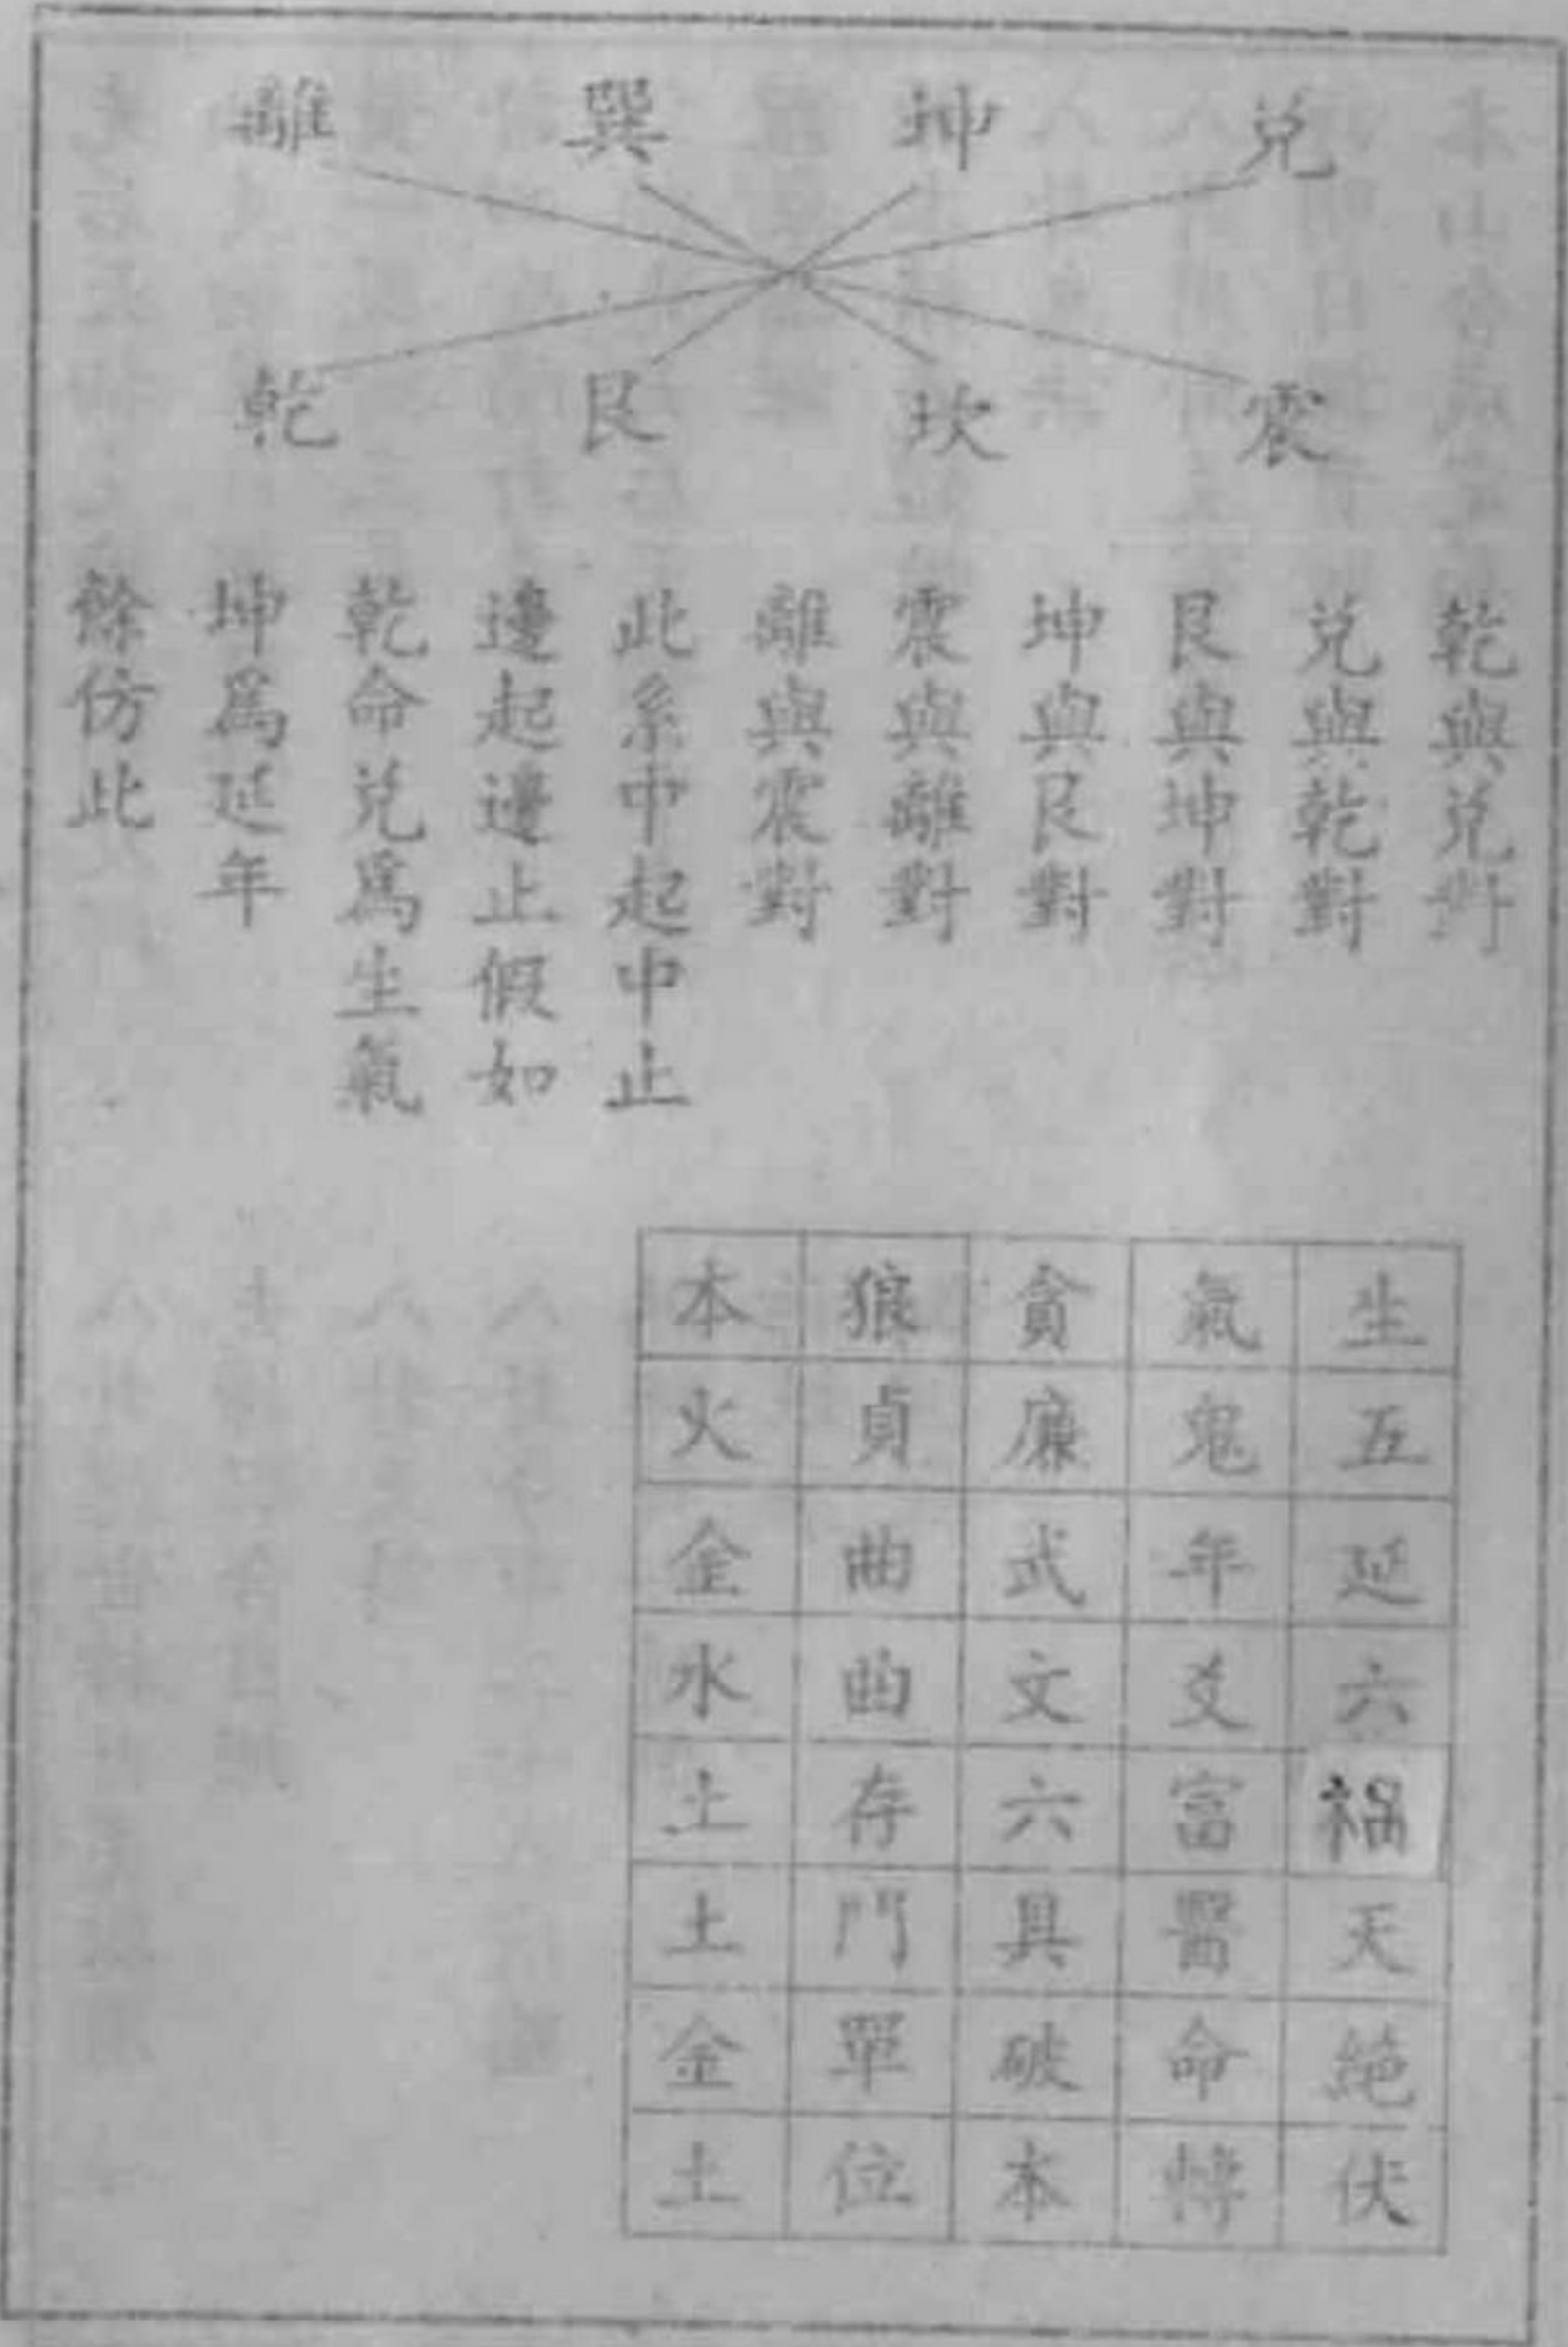 兌 坤 巽 離
震 坎 艮 乾
乾與兌對
兌與乾對
艮與坤對
坤與艮對
震與離對
離與震對
此系中起中止
邊起邊止假如
乾命兌爲生氣
坤爲延年
餘仿此
生氣貪狼本
五鬼廉貞火
延年武曲金
六爻文曲水
禍富六存土
天醫具門土
絶命破單金
伏轉本位土